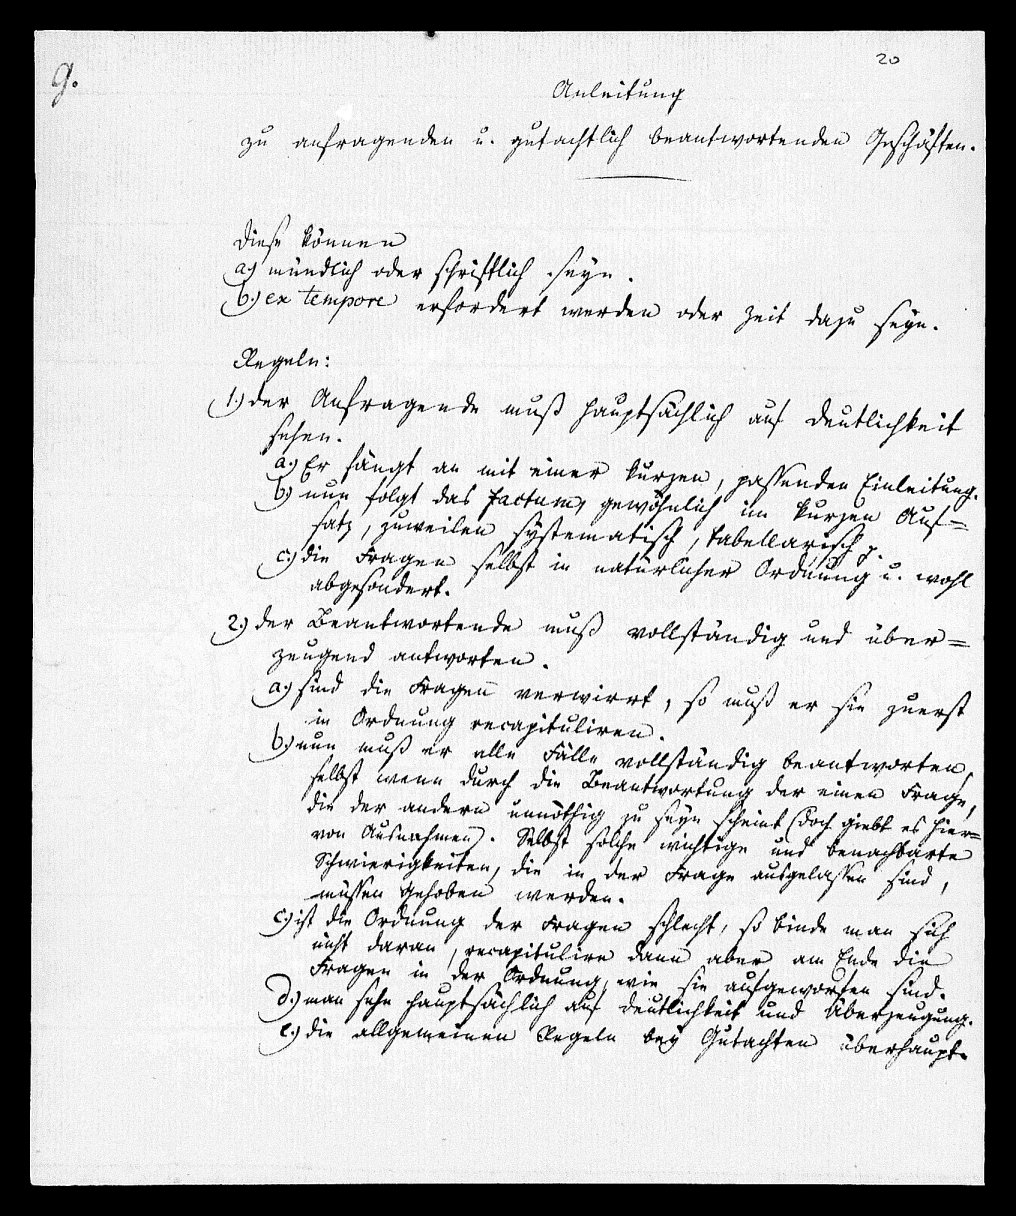 g.
20
Anleitung
zu anfragenden u. gutachtlich beantwortenden Geschäften.
Diese können
a.) mündlich oder schriftlich seyn.
b.) ex tempore erfordert werden oder Zeit dazu seyn.
Regeln:
1.) der Anfragende muß hauptsächlich auf Deutlichkeit
sehen.
a.) Er fängt an mit einer kurzen, passenden Einleitung.
b.) nun folgt das factum, gewöhnlich im kurzen Auf=
satz, zuweilen systematisch, tabellarisch p.
c.) die Fragen selbst in natürlicher Ordnung u. wohl
abgesondert.
2.) der Beantwortende muß vollständig und über=
zeugend antworten.
a.) sind die Fragen verwirrt, so muß er sie zuerst
in Ordnung recapituliren.
b.) nun muß er alle Fälle vollständig beantworten,
selbst wenn durch die Beantwortung der einen Frage,
die der andern unnöthig zu seyn scheint (doch giebt es hier=
von Ausnahmen). Selbst solche wichtige und benachbarte
Schwierigkeiten, die in der Frage ausgelassen sind,
müssen gehoben werden.
c.) ist die Ordnung der Fragen schlecht, so binde man sich
nicht daran, recapitulire dann aber am Ende die
Fragen in der Ordnung, wie sie aufgeworfen sind.
d.) man sehe hauptsächlich auf Deutlichkeit und Überzeugung.
e.) die allgemeinen Regeln bey Gutachten überhaupt.